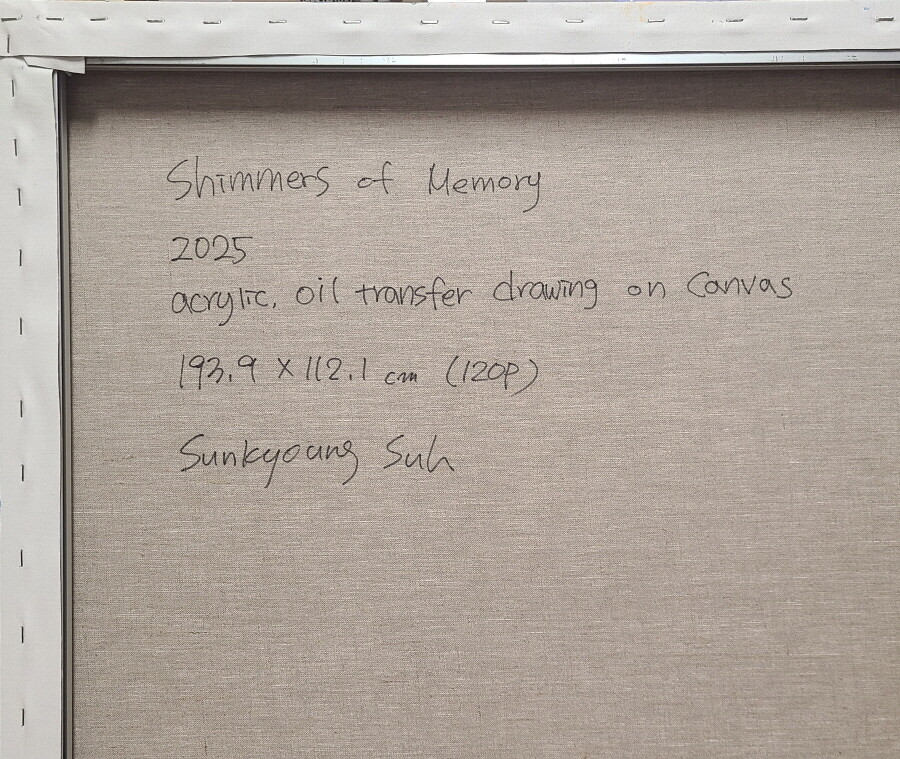 Shimmers of Memory
2025
acrylic, oil transfer drawing on Canvas
193.9 x 112.1 cm (120P)
Sunkyoung Suh